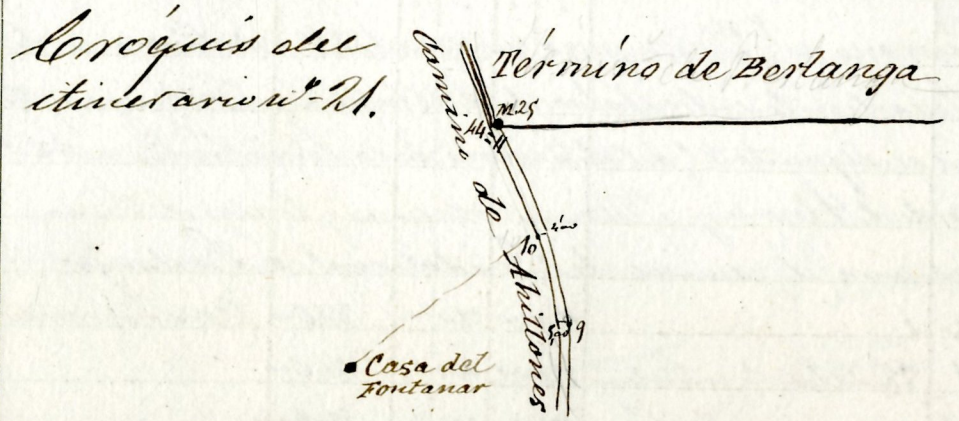 Cróquis del
itinerario nº 21.
Término de Berlanga
m. 25
44
11
Camino de Ahillones
10
9
Casa del
Fontanar